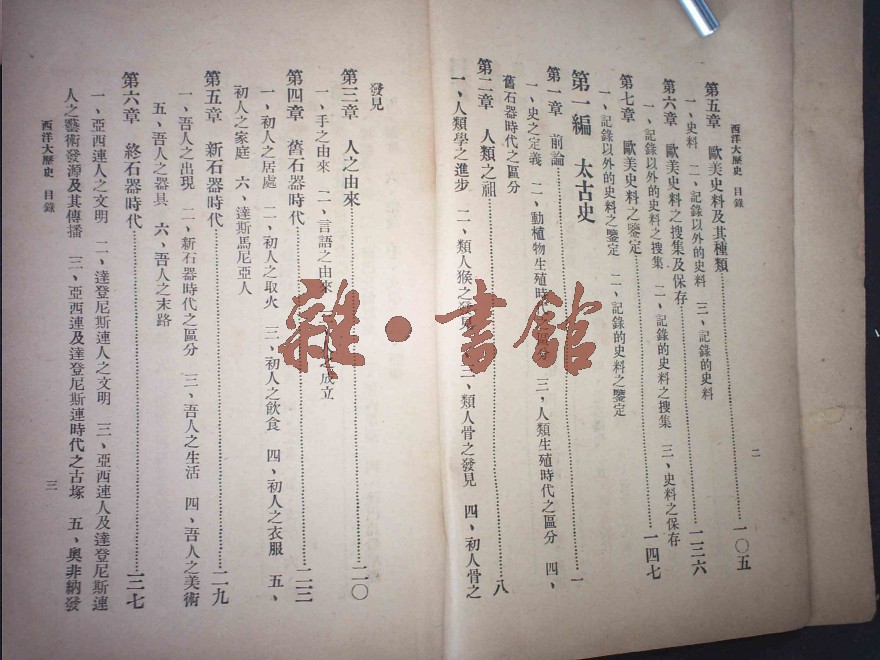 西洋大歷史 目錄
二
第五章 歐美史料及其種類 一〇五
一、史料 二、記錄以外的史料 三、記錄的史料
第六章 歐美史料之搜集及保存 一三六
一、記錄以外的史料之搜集 二、記錄的史料之搜集 三、史料之保存
第七章 歐美史料之鑒定 一四七
一、記錄以外的史料之鑒定 二、記錄的史料之鑒定
第一編 太古史
第一章 前論 一
一、史之定義 二、動植物生殖時代之區分 三、人類生殖時代之區分 四、
舊石器時代之區分
第二章 人類之祖 八
一、人類學之進步 二、類人猴之發見 三、類人骨之發見 四、初人骨之
發見
第三章 人之由來 二〇
一、手之由來 二、言語之由來 之成立
第四章 舊石器時代 二二
一、初人之居處 二、初人之取火 三、初人之飲食 四、初人之衣服 五、
初人之家庭 六、達斯馬尼亞人
第五章 新石器時代 二九
一、吾人之出現 二、新石器時代之區分 三、吾人之生活 四、吾人之美術
五、吾人之器具 六、吾人之末路
第六章 終石器時代 三七
一、亞西連人之文明 二、達登尼斯連人之文明 三、亞西連人及達登尼斯連
人之藝術發源及其傳播 三、亞西連及達登尼斯連時代之古塚 五、奧非納發
西洋大歷史 目錄
三
雜·書館